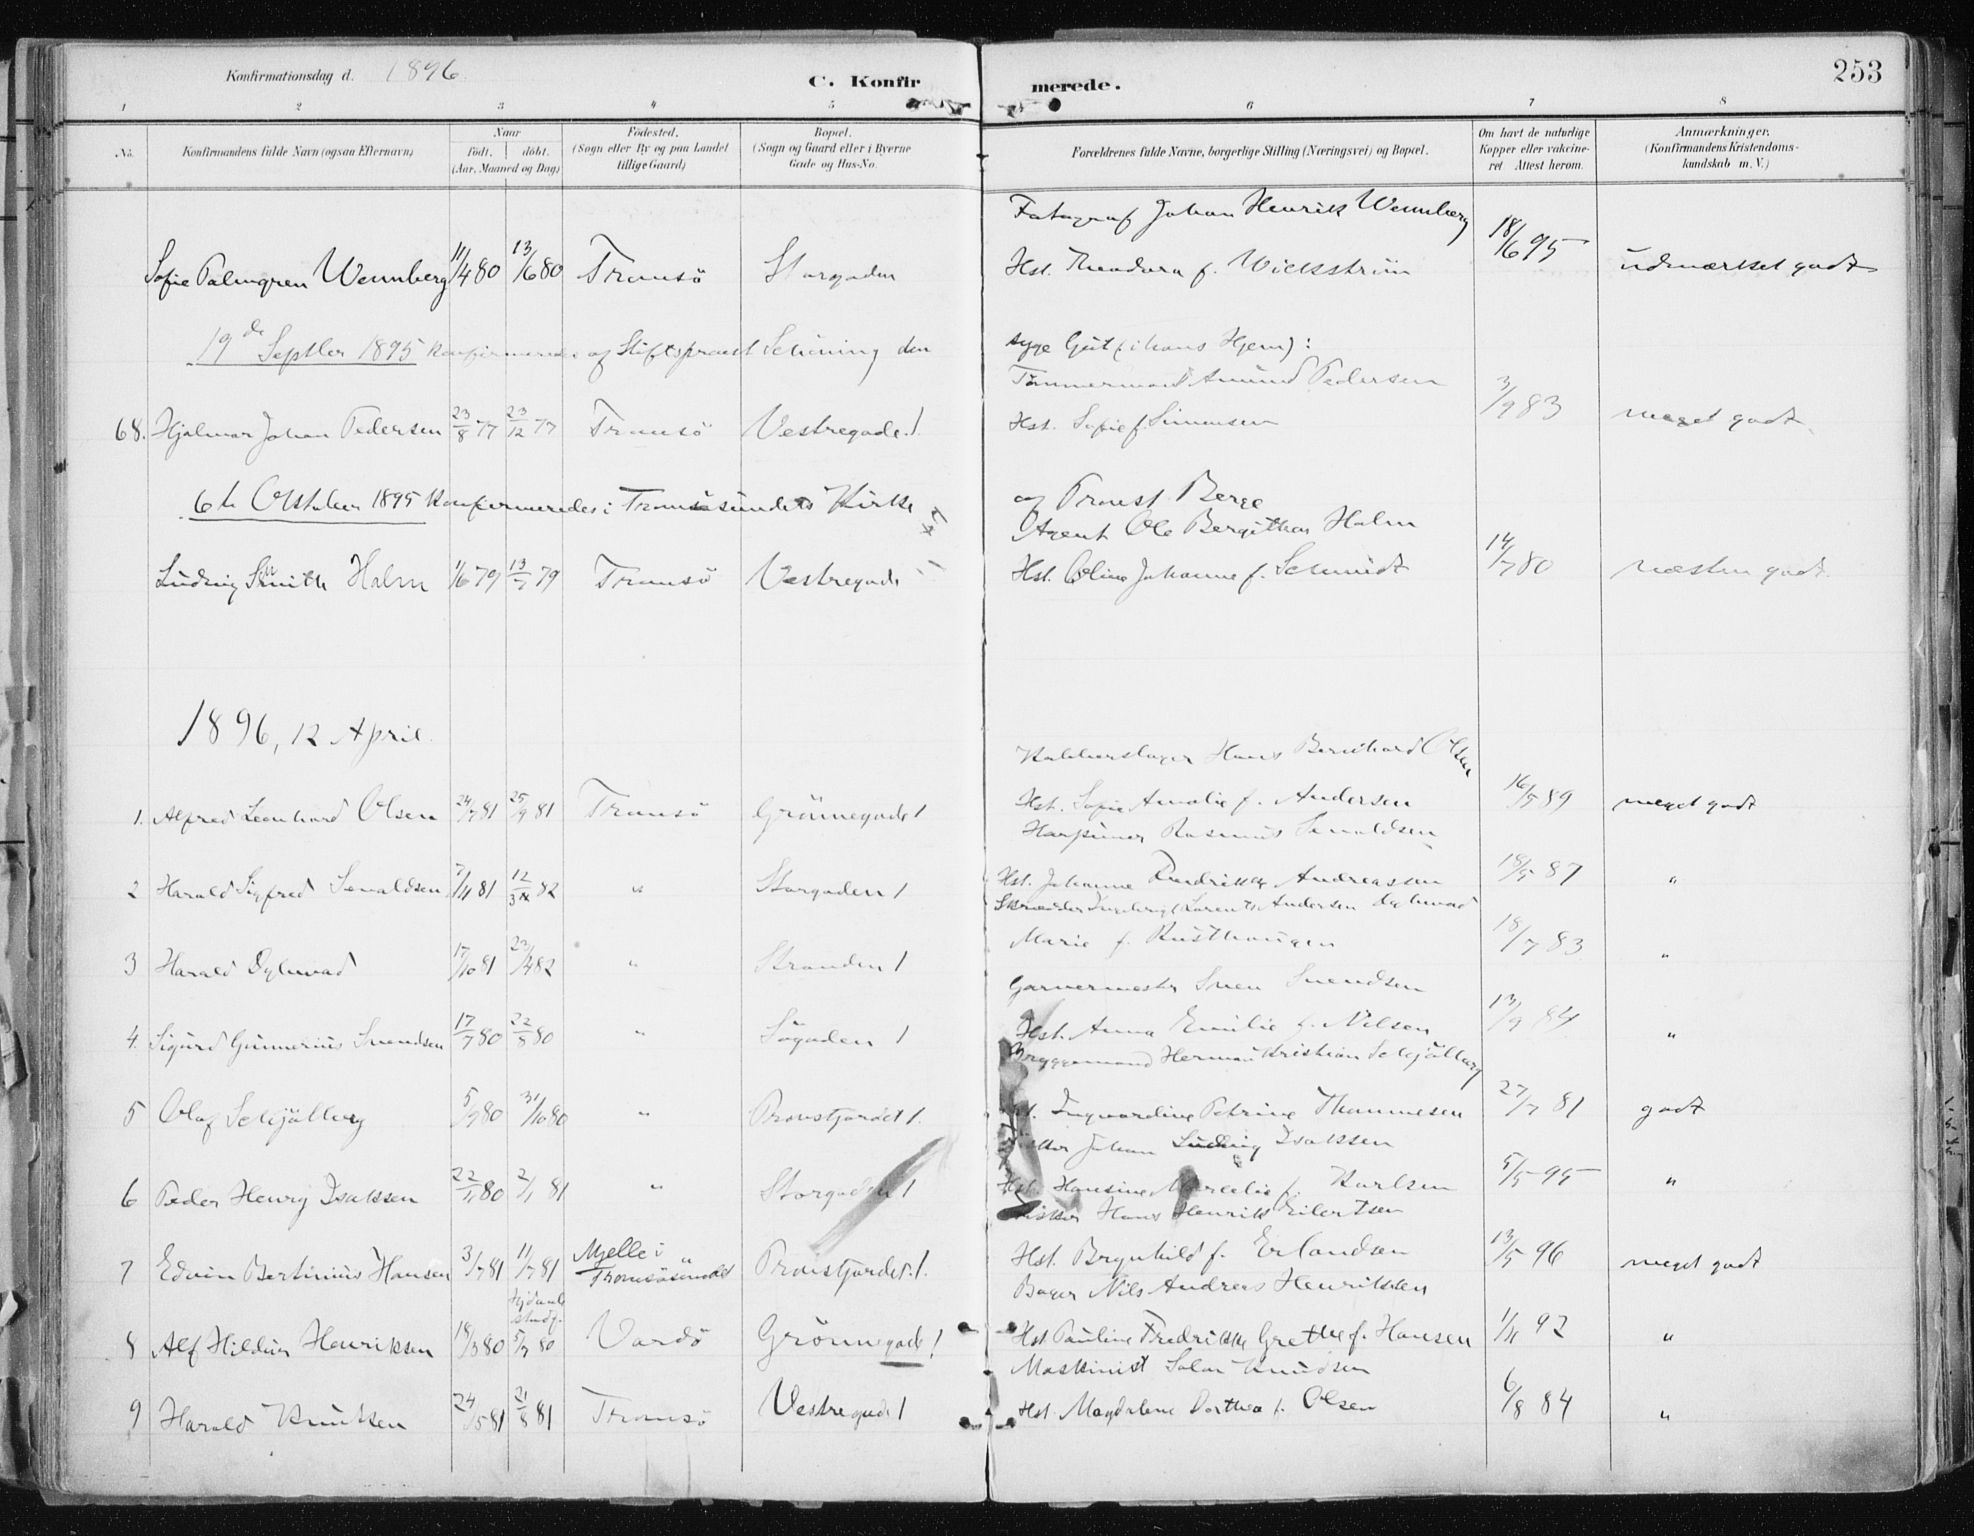 Konfirmationsdag d. 1896.
C. Konfirmerede.
253
1 2 3 4 5 6 7 8
No. Konfirmandens fulde Navn (ogsaa Efternavn)
Naar
födt. döbt.
(Aar, Maaned og Dag)
Födested.
(Sogn eller By og paa Landet
tillige Gaard)
Bopæl.
(Sogn og Gaard eller i Byerne
Gade og Hus-No.
Forældrenes fulde Navne, borgerlige Stilling (Næringsvei) og Bopæl.
Om havt de naturlige
Kopper eller vakcine-
ret Attest herom.
Anmærkninger.
(Konfirmandens Kristendoms-
kundskab m. V.)
Fotograf Johan Henrik Wennberg
Sofie Palmgren Wennberg 11/4 80 13/6 80 Tromsö Storgaden Hst. Theodora f. 18/6 95 udmærket godt
19de Septbr 1895 konfirmeredes af Stiftsprovst Schöning den syge Gut (i hans Hjem):
Tömmermand Amund Pedersen
68. Hjalmar Johan Pedersen 23/8 77 23/12 77 Tromsö Vestregade 1. Hst. Sofie f. Simonsen 3/9 83 meget godt.
6te Oktober 1895 konfirmeredes i Tromsösundets Kirke af Provst Berge
Agent Ole Holm
Ludvig Smith Holm 1/6 79 13/7 79 Tromsö Vestregade Hst. Oline Johanne f. Schmidt 14/7 80 næsten godt.
1896, 12 April.
Kobberslager Hans Bernhard Olsen
1. Alfred Leonhard Olsen 24/7 81 25/9 81 Tromsö Grönnegade 1 Hst. Sofie Amalie f. Andersen 16/5 89 meget godt
Harpuner Rasmus
2 Harald Sigfred 7/11 81 12/3 82 " Storgaden 1 Hst. Johanne Andreassen 18/5 87 "
Skrædder Andersen
3 Harald 17/10 81 23/4 82 " Stranden 1 Marie f. 18/7 83 "
Garvermester Sven Svendsen
4. Sigurd Gunnerius Svendsen 17/7 80 22/8 80 " Sögaden 1 Hst. Anna Emilie f. Nilsen 13/9 84 "
Bryggemand Herman Kristian Schjölberg
5 Olaf Schjölberg 5/9 80 31/10 80 " Provstjordet 1. Petrine Thommesen 27/7 81 godt
Johan Ludvig Isaksen
6 Peder Henry Isaksen 22/11 80 2/1 81 " Storgaden 1 Hst. Hansine f. Karlsen 5/5 95 "
Fisker Hans Henrik Eilertsen
7 Edvin Bertinius Hansen 3/7 81 11/7 81 Mjelle i Tromsösundet " Provstjordet 1. Hst. Brynhild f. Erlandsen 13/5 96 meget godt
Hjdöbt stadf.
Bager Nils Andreas Henriksen
8 Alf Hildur Henriksen 18/3 80 5/7 80 Vardö Grönnegade 1 Hst. Pauline Fredrikke Grethe f. Hansen 1/11 92 "
Maskinist Knudsen
9 Harald Knutsen 24/5 81 21/8 81 Tromsö Vestregade 1 Hst. Magdalene Dorthea f. Olsen 6/8 84 "